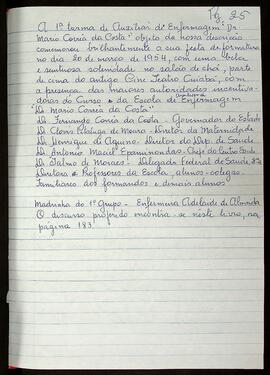 Pg. 25
A 1ª turma de Auxiliar de Enfermagem "Dr
Mario Corrêa da Costa" objeto de nossa descrição
comemorou brilhantemente a sua festa de formatura
no dia 20 de março de 1954, com uma bela
e suntuosa solenidade no salão de chá, parte
de cima do antigo Cine Teatro Cuiabá, com
a presença das maiores autoridades incentiva-
doras do Curso da Escola de Enfermagem
Dr Mario Corrêa da Costa
Dr Fernando Corrêa da Costa - Governador do Estado
Dr Clovis Pitaluga de Moura - Diretor da Maternidade
Dr Henrique de Aquino - Diretor do Dep. de Saúde
Dr Antonio Maciel Epaminondas - Chefe do Centro
Dr Dalmo de Moraes - Delegado Federal de Saúde
Diretora Professores da Escola, alunos-colegas
Familiares dos formandos e demais alunos
Madrinha do 1º Grupo - Enfermeira Adelaide de Almeida
O discurso proferido encontra-se neste livro, na
página 183.